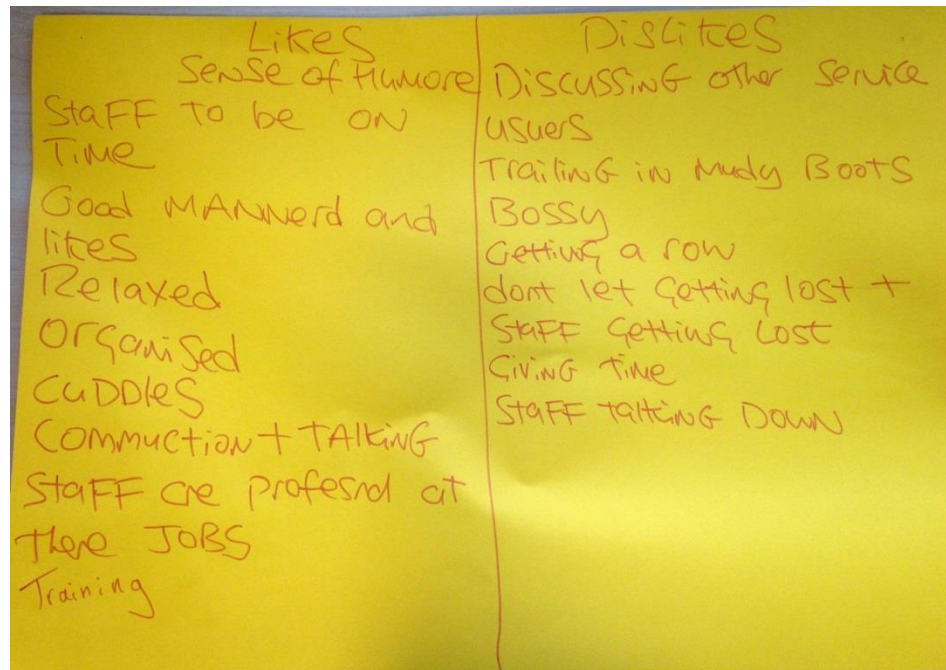 Likes
Sense of Humore
Staff to be on
Time
Good MANNerd and
likes
Relaxed
Organised
CUDDles
Commuction + TALKING
Staff are profesnd at
there JOBS
Training
Dislikes
Discussing other service
users
Trailing in mudy Boots
Bossy
Getting a row
dont let Getting lost +
Staff Getting Lost
Giving Time
Staff talking Down